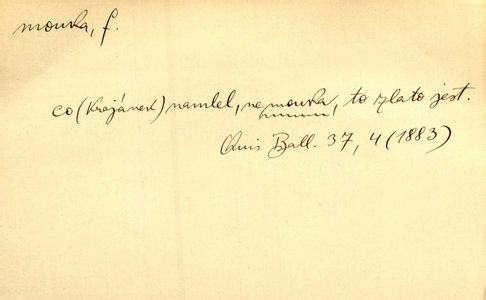 mouka, f.
co (Krajánek) namlel, ne mouka, to zlato jest.
Ball. 37, 4 (1883)